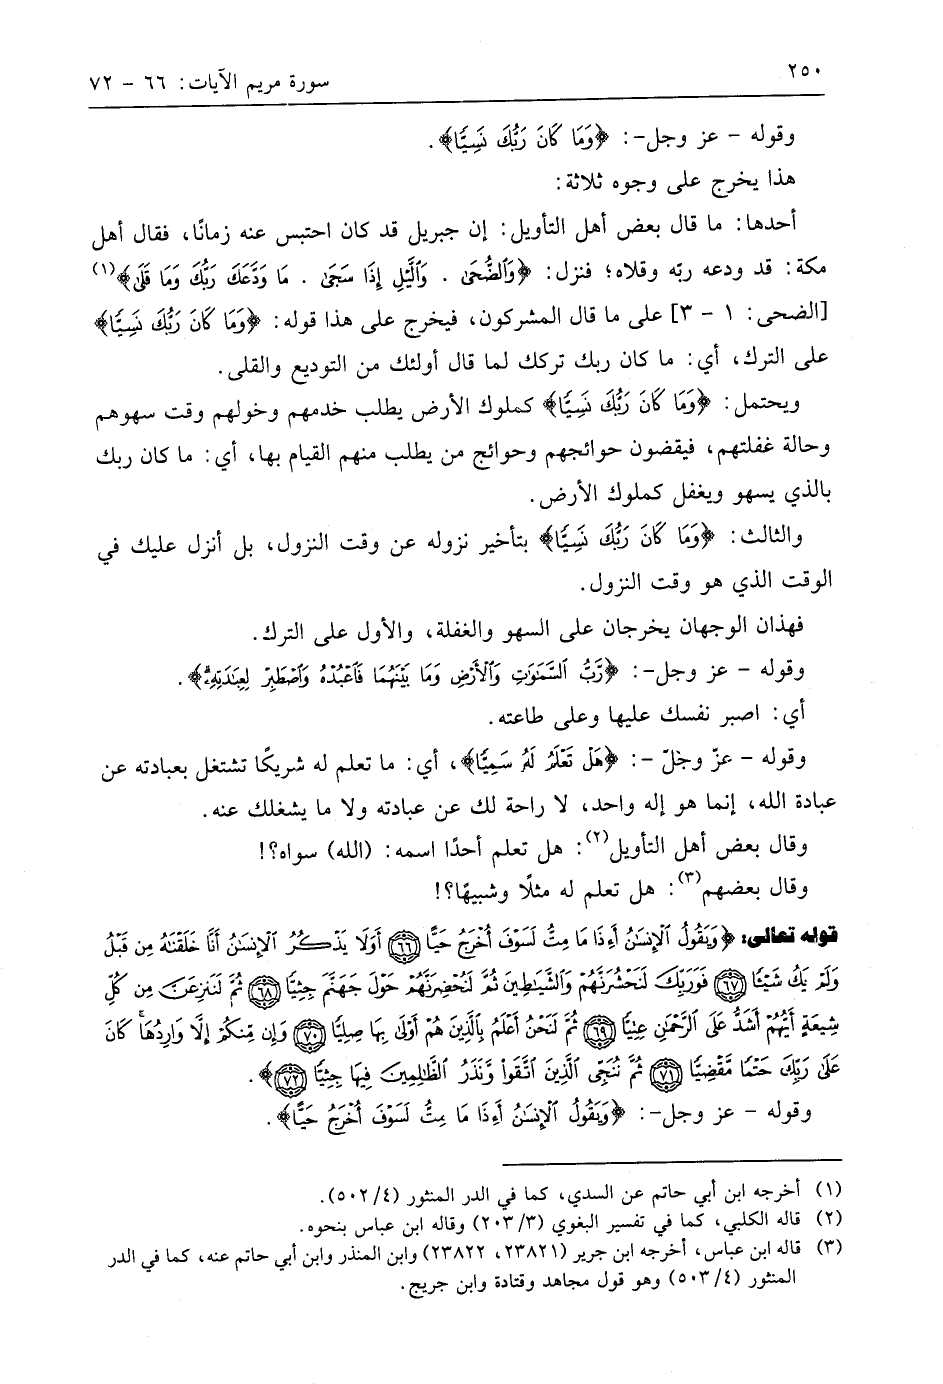 ٢٥٠
سورة مريم الآيات: ٦٦ - ٧٢
وقوله - عز وجل-: ﴿وَمَا كَانَ رَبُّكَ نَسِيًّا﴾.
هذا يخرج على وجوه ثلاثة:
أحدها: ما قال بعض أهل التأويل: إن جبريل قد كان احتبس عنه زمانًا، فقال أهل
مكة: قد ودعه ربّه وقلاه؛ فنزل: ﴿وَٱلضُّحَىٰ . وَٱلَّيْلِ إِذَا سَجَىٰ . مَا وَدَّعَكَ رَبُّكَ وَمَا قَلَىٰ﴾(١)
[الضحى: ١ - ٣] على ما قال المشركون، فيخرج على هذا قوله: ﴿وَمَا كَانَ رَبُّكَ نَسِيًّا﴾
على الترك، أي: ما كان ربك تركك لما قال أولئك من التوديع والقلى.
ويحتمل: ﴿وَمَا كَانَ رَبُّكَ نَسِيًّا﴾ كملوك الأرض يطلب خدمهم وخولهم وقت سهوهم
وحالة غفلتهم، فيقضون حوائجهم وحوائج من يطلب منهم القيام بها، أي: ما كان ربك
بالذي يسهو ويغفل كملوك الأرض.
والثالث: ﴿وَمَا كَانَ رَبُّكَ نَسِيًّا﴾ بتأخير نزوله عن وقت النزول، بل أنزل عليك في
الوقت الذي هو وقت النزول.
فهذان الوجهان يخرجان على السهو والغفلة، والأول على الترك.
وقوله - عز وجل-: ﴿رَّبُّ ٱلسَّمَٰوَٰتِ وَٱلْأَرْضِ وَمَا بَيْنَهُمَا فَٱعْبُدْهُ وَٱصْطَبِرْ لِعِبَٰدَتِهِۦۚ﴾.
أي: اصبر نفسك عليها وعلى طاعته.
وقوله - عزّ وجلّ -: ﴿هَلْ تَعْلَمُ لَهُۥ سَمِيًّا﴾، أي: ما تعلم له شريكًا تشتغل بعبادته عن
عبادة الله، إنما هو إله واحد، لا راحة لك عن عبادته ولا ما يشغلك عنه.
وقال بعض أهل التأويل(٢): هل تعلم أحدًا اسمه: (الله) سواه؟!
وقال بعضهم(٣): هل تعلم له مثلًا وشبيهًا؟!
قوله تعالى: ﴿وَيَقُولُ ٱلْإِنسَٰنُ أَءِذَا مَا مِتُّ لَسَوْفَ أُخْرَجُ حَيًّا ٦٦ أَوَلَا يَذْكُرُ ٱلْإِنسَٰنُ أَنَّا خَلَقْنَٰهُ مِن قَبْلُ
وَلَمْ يَكُ شَيْـًٔا ٦٧ فَوَرَبِّكَ لَنَحْشُرَنَّهُمْ وَٱلشَّيَٰطِينَ ثُمَّ لَنُحْضِرَنَّهُمْ حَوْلَ جَهَنَّمَ جِثِيًّا ٦٨ ثُمَّ لَنَنزِعَنَّ مِن كُلِّ
شِيعَةٍ أَيُّهُمْ أَشَدُّ عَلَى ٱلرَّحْمَٰنِ عِتِيًّا ٦٩ ثُمَّ لَنَحْنُ أَعْلَمُ بِٱلَّذِينَ هُمْ أَوْلَىٰ بِهَا صِلِيًّا ٧٠ وَإِن مِّنكُمْ إِلَّا وَارِدُهَاۚ كَانَ
عَلَىٰ رَبِّكَ حَتْمًا مَّقْضِيًّا ٧١ ثُمَّ نُنَجِّى ٱلَّذِينَ ٱتَّقَوا۟ وَّنَذَرُ ٱلظَّٰلِمِينَ فِيهَا جِثِيًّا ٧٢﴾.
وقوله - عز وجل-: ﴿وَيَقُولُ ٱلْإِنسَٰنُ أَءِذَا مَا مِتُّ لَسَوْفَ أُخْرَجُ حَيًّا﴾.
(١) أخرجه ابن أبي حاتم عن السدي، كما في الدر المنثور (٥٠٢/٤).
(٢) قاله الكلبي، كما في تفسير البغوي (٢٠٣/٣) وقاله ابن عباس بنحوه.
(٣) قاله ابن عباس، أخرجه ابن جرير (٢٣٨٢١، ٢٣٨٢٢) وابن المنذر وابن أبي حاتم عنه، كما في الدر
المنثور (٥٠٣/٤) وهو قول مجاهد وقتادة وابن جريج.